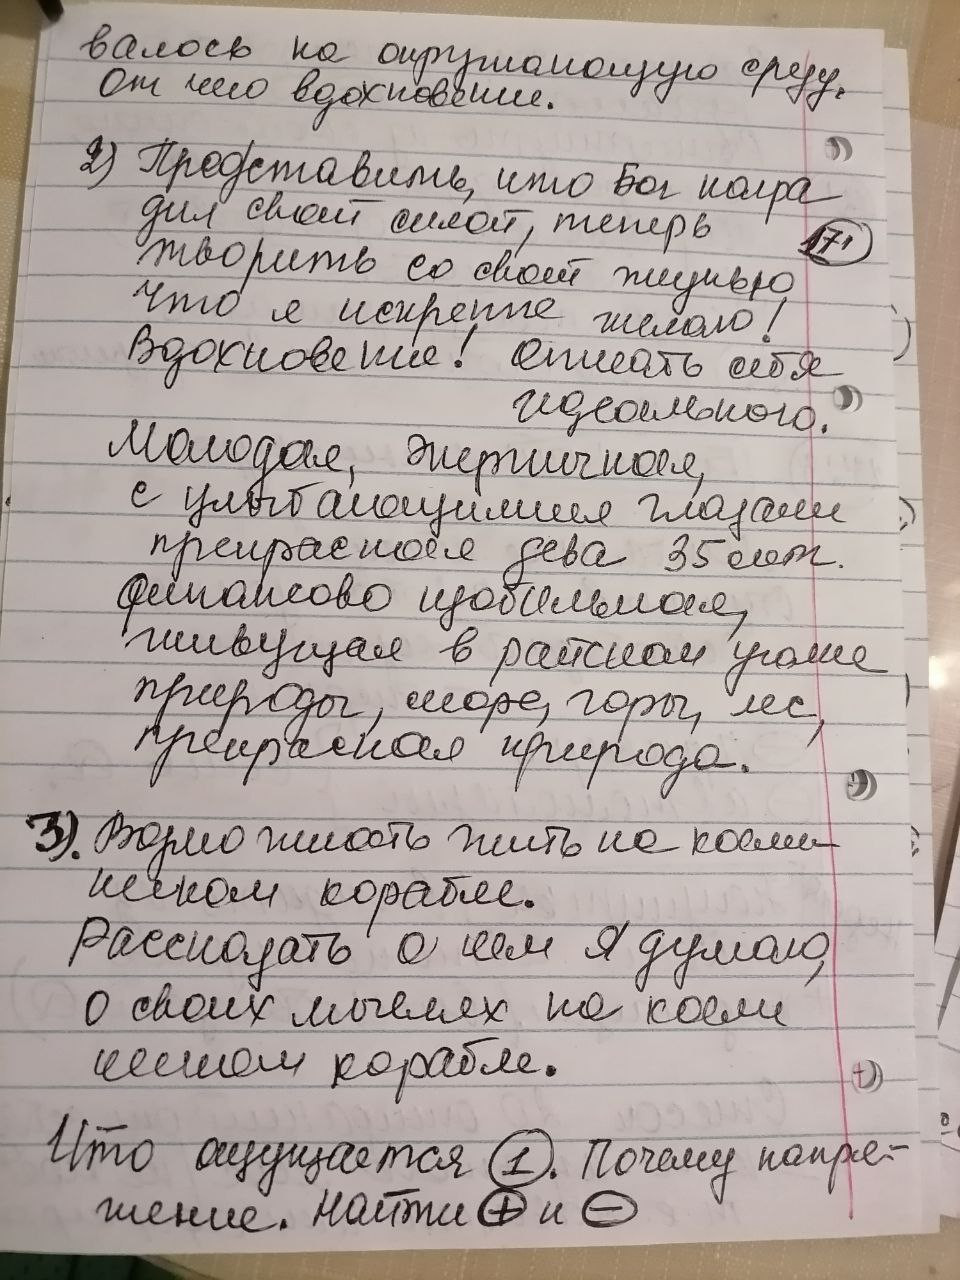 валось на окружающую среду.
От чего вдохновение.
2) Представить, что Бог награ
дил своей силой, теперь
творить со своей жизнью
что я искренне желаю!
Вдохновение! Описать себя
идеального.
Молодая, энергичная,
с улыбающимися глазами
прекрасная дева 35 лет.
Финансово изобильная,
живущая в райском уголке
природы, море, горы, лес,
прекрасная природа.
3). Возможность жить на косми-
ческом корабле.
Рассказать о чем я думаю,
о своих мыслях на косми
ческом корабле.
Что ощущается 1. Почему напря-
жение. Найти + и -